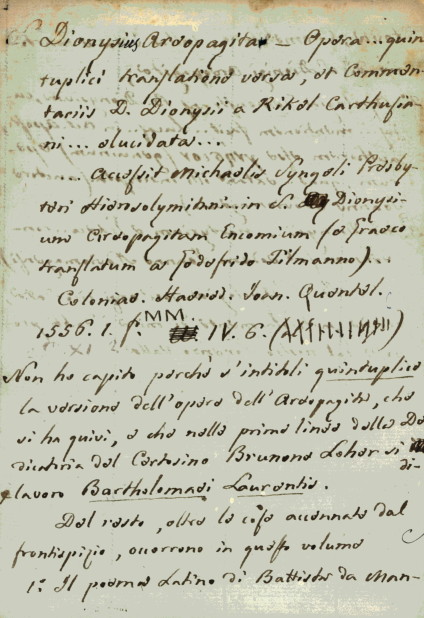 Dionysius Areopagita – Opera... quin
tuplici translatione versa, et Commen-
tariis D. Dionysii a Rikel Carthusia-
ni... elucidata...
... Accessit Michaelis Syngeli Presby-
teri Hierosolymitani... in S. Dionysi-
um Areopagitam Encomium (e Graeco
translatum a Godofrido Tilmanno)...
Coloniae. Haered. Joan. Quentel.
1556. 1. f. MM IV. 6. (
Non ho capito perchè s'intitoli quintuplice
la versione dell'opere dell'Areopagita, che
si ha quivi, e che nella prima linea della De
dicatoria del Certosino Brunone Loher si di-
e lavoro Bartholomaei Laurentis.
Del resto, oltre le cose accennate dal
frontispizio, occorrono in questo volume
1.° Il poema Latino di Battista da Man-